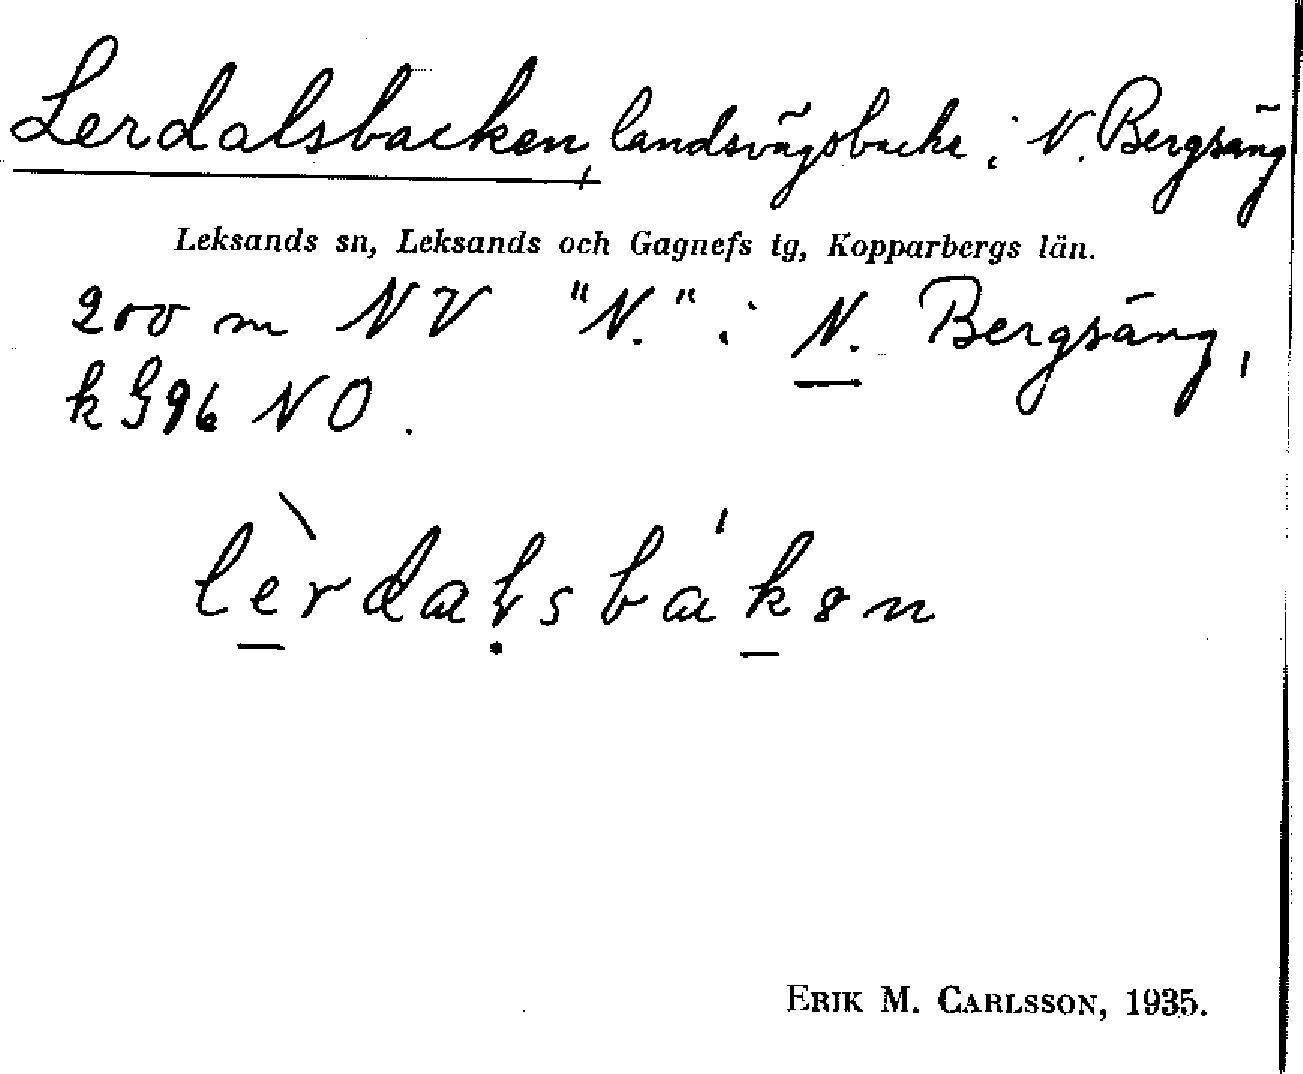 Lerdalsbacken, landsvägsbacke i N. Bergsäng
Leksands sn, Leksands och Gagnefs tg, Kopparbergs län.
200 m NV "N." i N. Bergsäng,
k G96 NO.
lèrdaḷsbákən
ERIK M. CARLSSON, 1935.